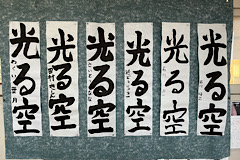 光る空
光る空
光る空
光る空
光る空
光る空